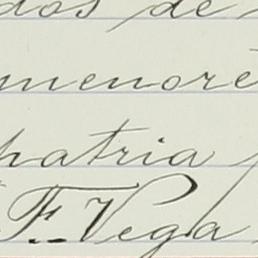 dos de
menore
patria
F. Vega